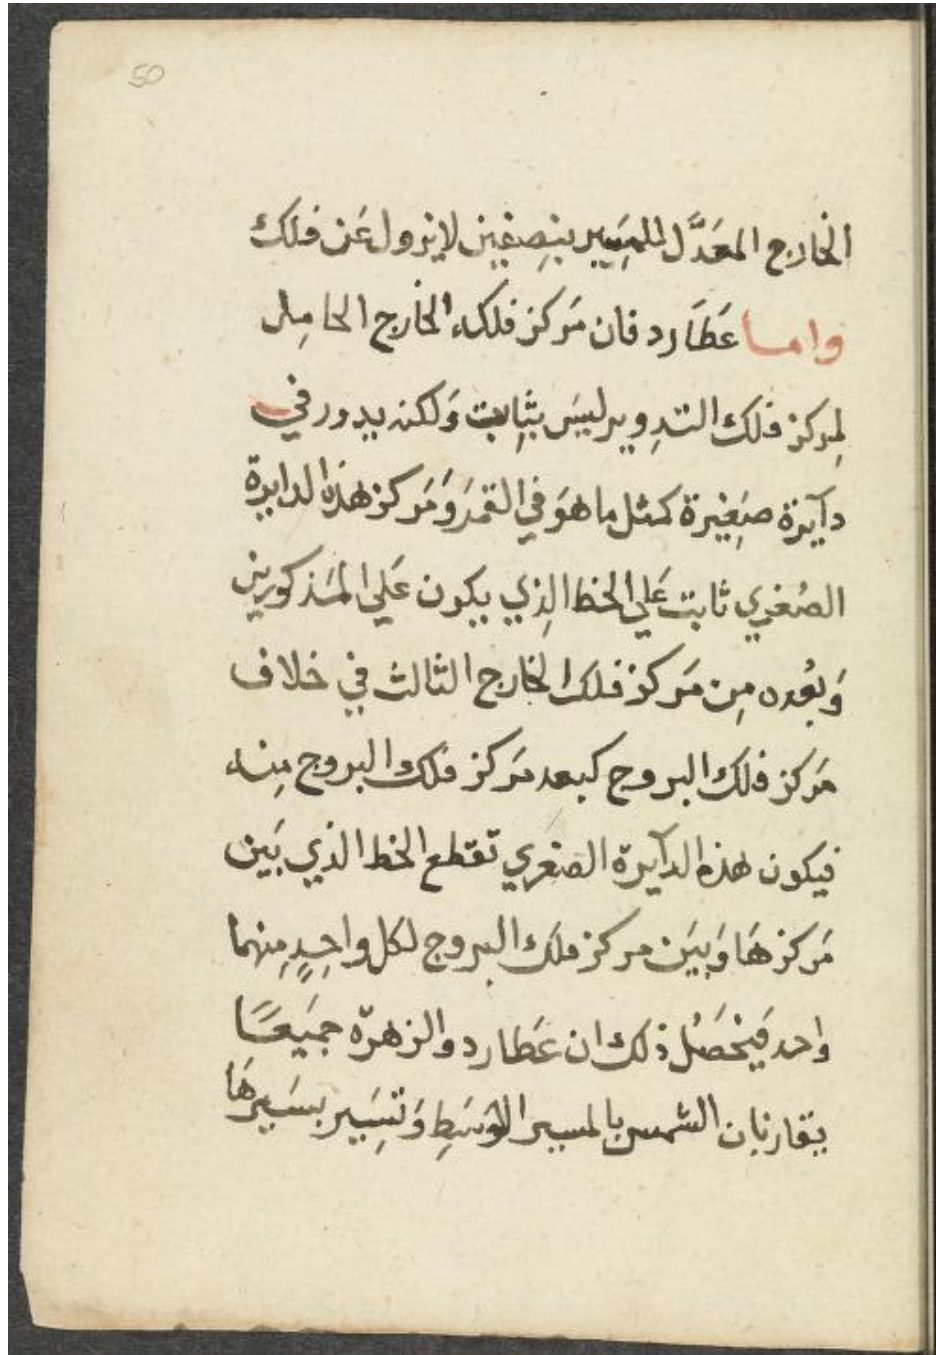 50
الخارج المعَدَّل للمَسِير بنِصفِين لا يزول عَن فلك
واما عَطَارد فان مَركز فلكه الخارج الحامِل
لِمركز فلك التدِوير ليسَ بثِابت وَلكنه يدور في
دآيرة صَغِيرة كمثل ما هوَ في القمَر وَمَركز هذه الدايرة
الصُغري ثابت عَلي الخط الذِي يكون عَلي المَذكورين
وَبعُده مِن مَركز فلك الخارج الثالث في خلاف
مَركز فلك البروج كبعد مَركز فلك البروج مِنه
فيكون هذه الدآيرة الصغري تقطع الخط الذي بَين
مَركزهَا وَبيَن مركز فلك البروج لكل واحِدٍ مِنهما
واحد فَيحْصَلُ ذلك ان عَطارد والزهرّه جميَعًا
يقارنان الشمس بالمسير الوَسَطِ وَتسِير بسَيرهَا